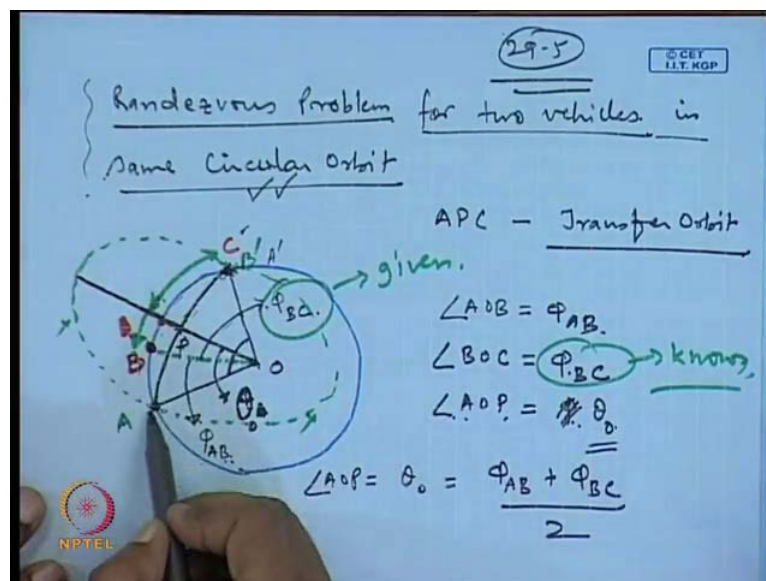 29-5
© CET
I.I.T. KGP
Randezvous Problem for two vehicles in
same Circular Orbit
APC - Transfer Orbit
given.
∠AOB = φAB.
∠BOC = φBC → known,
∠AOP = θ₀
∠AOP = θ₀ = φAB + φBC
2
C'
B' A'
φBC
B
P
O
A
θ₀
φAB.
NPTEL